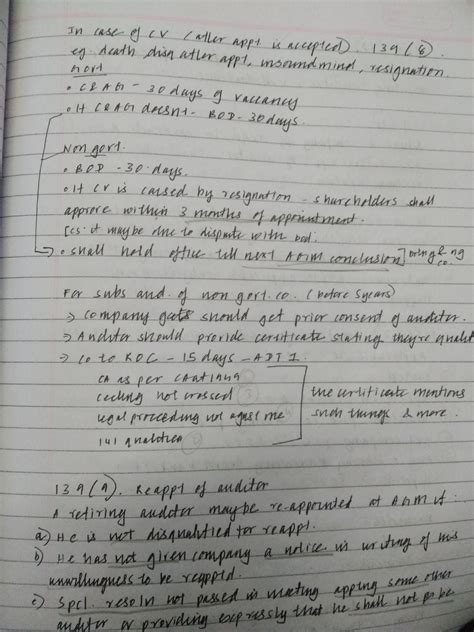 In case of CV (after appt is accepted). 139 (8)
eg. death, disq after appt, unsoundmind, resignation.
Govt
• C&AG - 30 days of vaccancy
• If C&AG doesn't - BOD - 30 days.
Non govt.
• BOD - 30 days.
• If CV is caused by resignation - shareholders shall
approve within 3 months of appointment.
[cs: it may be due to dispute with bod.
→ • shall hold office till next AGM conclusion] & ng
co.
For subs aud. of non govt. co. (before 5 years)
→ Company gets should get prior consent of auditor.
→ Auditor should provide certificate stating they're
→ Co to ROC - 15 days - ADT 1.
CA as per CA act 1949
ceiling not crossed
legal proceeding not agnst me
141 qualifica
the certificate mentions
such things & more.
139 (9). Reappt of auditor
A retiring auditor maybe re-appointed at AGM if:
a) He is not disqualified for reappt.
b) He has not given company a notice in writing of his
unwillingness to be reapptd.
c) Spcl. resoln not passed in meeting apptng some other
auditor or providing expressly that he shall not be